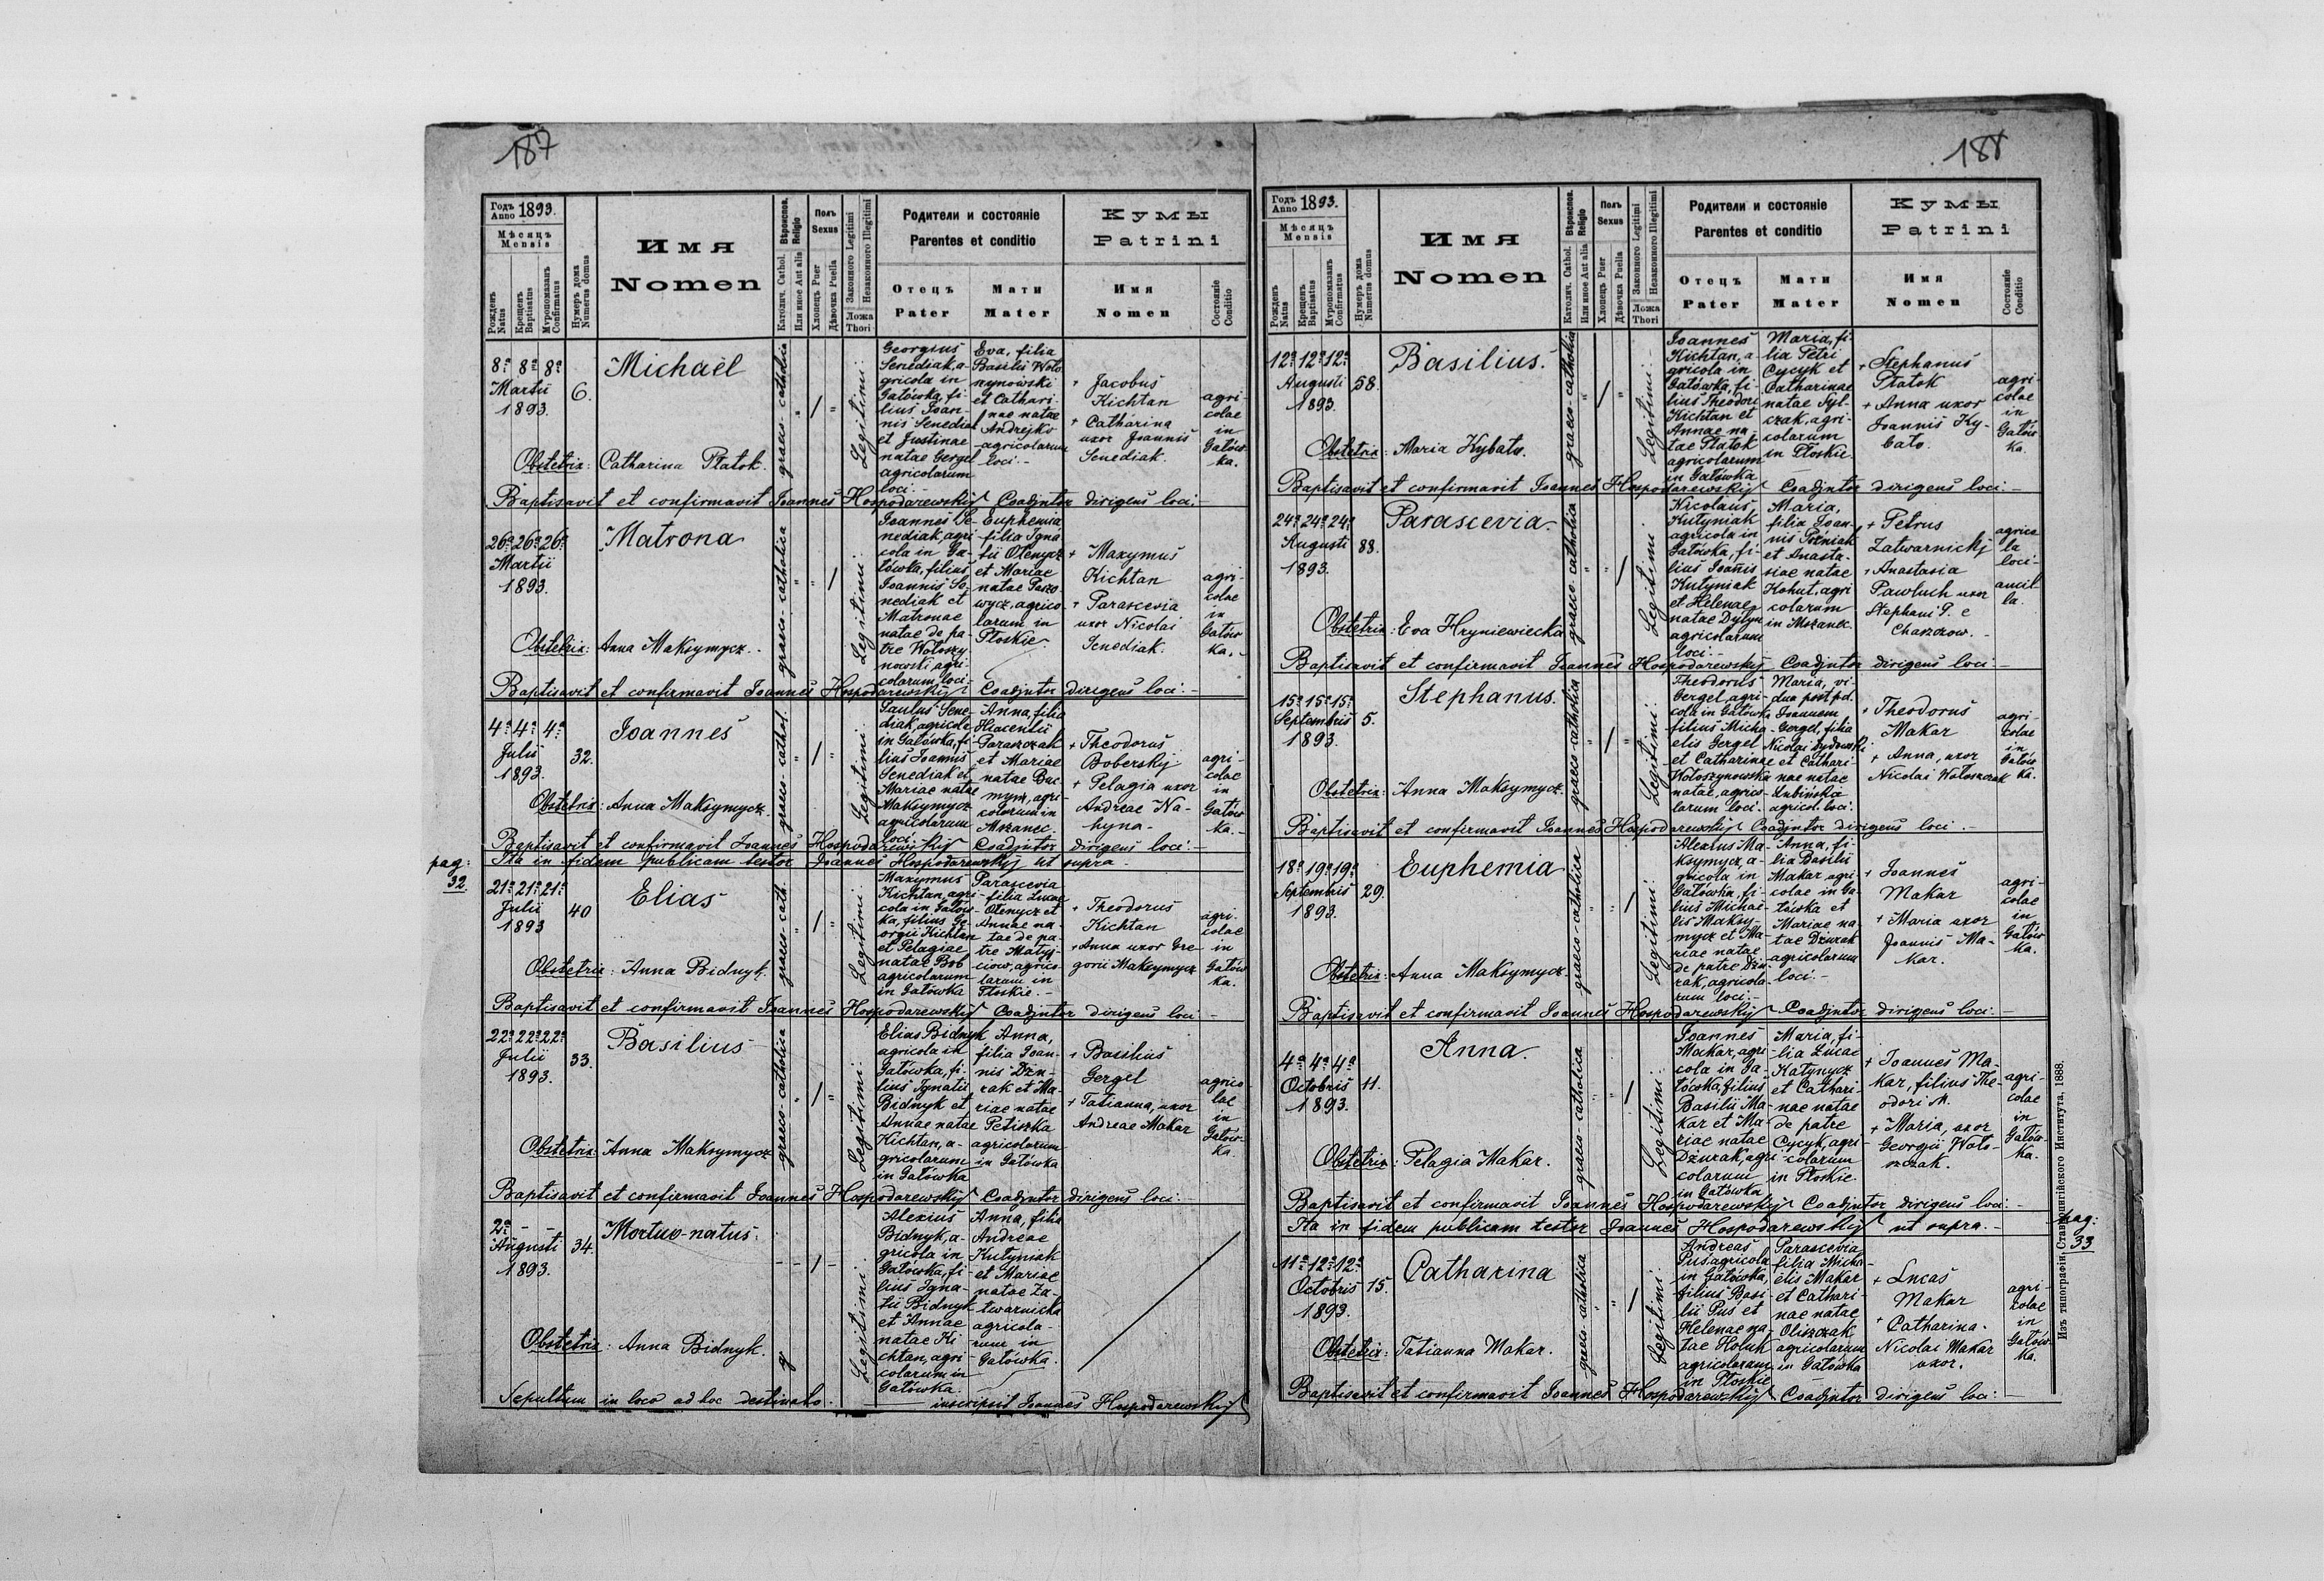 187
Годъ Anno 1893.
Мѣсяцъ Mensis
Рожденъ Natus
Крещенъ Baptisatus
Мѵропомазанъ Confirmatus
Нумеръ дома Numerus domus
Имя
Nomen
Вѣроиспов. Religio
Католич. Cathol.
Или иное Aut alia
Полъ Sexus
Хлопецъ Puer
Дѣвочка Puella
Законного Legitimi
Незаконного Illegitimi
Ложа Thori
Родители и состояніе
Parentes et conditio
Отецъ Pater
Мати Mater
Кумы
Patrini
Имя Nomen
Состояніе Conditio
8a 8a 8a
Martii
1893.
6.
Michaël
Obstetrix: Catharina Płatok.
graeco-catholica
" / "
Legitimi.
Georgius
Senediak, a-
gricola in
Gałówka, fi-
lius Joan-
nis Senediak
et Justinae
natae Gergel
agricolarum
loci.-
Eva, filia
Basilii Woło
szynowski
et Cathari-
nae natae
Andrejko
agricolarum
loci.-
+ Jacobus
Kichtan
+ Catharina
uxor Joannis
Senediak.
agri-
colae
in
Gałów-
ka.
Baptisavit et confirmavit Joannes Hospodarewskij Coadjutor dirigens loci.-
26a 26a 26a
Martii
1893.
Matrona
Obstetrix: Anna Maksymycz.
graeco-catholica
" " /
Legitimi.
Joannes Se-
nediak, agri-
cola in Ga-
łówka, filius
Joannis Se-
nediak et
Matronae
natae de pa-
tre Wołoszy-
nowski, agri-
colarum, loci.
Euphemia
filia Igna
tii Otenycz
et Mariae
natae Paszo
wycz, agrico-
larum in
Płoskie.
+ Maxymus
Kichtan
+ Parascevia
uxor Nicolai
Senediak.
agri-
colae
in
Gałów
ka.-
Baptisavit et confirmavit Joannes Hospodarewskij Coadjutor dirigens loci.-
4a 4a 4a
Julii
1893.
32.
Joannes
Obstetrix: Anna Maksymycz.
graeco-cathol.
" / "
Legitimi.
Paulus Sene-
diak agricola
in Gałówka, fi-
lius Joannis
Senediak et
Mariae natae
Maksymycz
agricolarum
loci.
Anna, filia
Hiacentii
Paraszczak
et Mariae
natae Bac
mym, agri-
colarum in
Mszanec.
+ Theodorus
Boberskij
+ Pelagia uxor
Andreae Na-
hyna.
agri-
colae
in
Gałów
ka.-
Baptisavit et confirmavit Joannes Hospodarewskij Coadjutor dirigens loci.-
pag: 32.
Ita in fidem publicam testor Joannes Hospodarewskij ut supra.
21a 21a 21a
Julii
1893
40
Elias
Obstetrix: Anna Bidnyk.
graeco-cath.
" / "
Legitimi.
Maxymus
Kichtan, agri-
cola in Gałów-
ka, filius Ge-
orgii Kichtan
et Pelagiae
natae Bob
agricolarum
in Gałówka
Parascevia
filia Lucae
Otenycz et
Annae na-
tae de pa-
tre Matyj-
ciow, agrico-
larum in
Płoskie.-
+ Theodorus
Kichtan
+ Anna uxor Gre-
gorii Maksymycz
agri-
colae
in
Gałów
ka.
Baptisavit et confirmavit Joannes Hospodarewskij Coadjutor dirigens loci.-
22a 22a 22a
Julii
1893.
33.
Basilius
Obstetrix: Anna Maksymycz
graeco-catholica
" / "
Legitimi.
Elias Bidnyk
agricola in
Gałówka, fi-
lius Ignatii
Bidnyk et
Annae natae
Kichtan, a-
gricolarum
in Gałówka
Anna,
filia Joan-
nis Dżu-
rak et Ma-
riae natae
Petiszka
agricolarum
in Gałówka
+ Basilius
Gergel
+ Tatianna, uxor
Andreae Makar
agrico-
lae
in
Gałów-
ka.
Baptisavit et confirmavit Joannes Hospodarewskij Coadjutor dirigens loci.-
2a - -
Augusti
1893.
34.
Mortuo-natus.
Obstetrix: Anna Bidnyk.
- - / -
Legitimi.
Alexius
Bidnyk, a-
gricola in
Gałówka, fi-
lius Igna-
tii Bidnyk
et Annae
natae Ki
chtan, agri-
colarum in
Gałówka.
Anna, filia
Andreae
Kutyniak
et Mariae
natae Za-
twarnicka
agricola-
rum in
Gałówka.
Sepultum in loco ad hoc destinato. inscripsit Joannes Hospodarewskij
188
Годъ Anno 1893.
Мѣсяцъ Mensis
Рожденъ Natus
Крещенъ Baptisatus
Мѵропомазанъ Confirmatus
Нумеръ дома Numerus domus
Имя
Nomen
Вѣроиспов. Religio
Католич. Cathol.
Или иное Aut alia
Полъ Sexus
Хлопецъ Puer
Дѣвочка Puella
Законного Legitimi
Незаконного Illegitimi
Ложа Thori
Родители и состояніе
Parentes et conditio
Отецъ Pater
Мати Mater
Кумы
Patrini
Имя Nomen
Состояніе Conditio
12a 12a 12a
Augusti
1893.
58.
Basilius.
Obstetrix: Maria Kybato.
graeco-catholica
" / "
Legitimi.
Joannes
Kichtan, a-
gricola in
Gałówka, fi-
lius Theodori
Kichtan et
Annae na-
tae Płatok
agricolarum
in Gałówka
Maria, fi-
lia Petri
Cycyk et
Catharinae
natae Syl-
czak, agri-
colarum
in Płoskie.
+ Stephanus
Płatok
+ Anna uxor
Joannis Ky-
bato.
agri-
colae
in
Gałów
ka.
Baptisavit et confirmavit Joannes Hospodarewskij Coadjutor dirigens loci.-
24a 24a 24a
Augusti
1893.
88.
Parascevia.
Obstetrix: Eva Hryniewiecka
graeco-catholica
" " /
Legitimi.
Nicolaus
Kutyniak
agricola in
Gałówka, fi-
lius Joannis
Kutyniak
et Helenae
natae Dytyn
agricolarum
loci.-
Maria,
filia Joan-
nis Pozniak
et Anasta-
siae natae
Kohut, agri
colarum
in Mszanec.
+ Petrus
Zatwarnickj
+ Anastasia
Pawluch uxor
Stephani P. e
Chaszczow.
agrico
la
loci-
ancil
la.
Baptisavit et confirmavit Joannes Hospodarewskij Coadjutor dirigens loci.-
15a 15a 15a
Septembris
1893.
5.
Stephanus.
Obstetrix: Anna Maksymycz.
graeco-catholica
" / "
Legitimi.
Theodorus
Gergel, agri-
cola in Gałówka
filius Micha-
elis Gergel
et Catharinae
Wołoszynowska
natae, agrico-
larum loci.
Maria, vi-
dua post pd.
Joannem
Gergel, filia
Nicolai Dydowski
et Cathari
nae natae
Łubińska
agricol. loci.
+ Theodorus
Makar
+ Anna, uxor
Nicolai Wołoszczak
agri-
colae
in
Gałów
ka.
Baptisavit et confirmavit Joannes Hospodarewskij Coadjutor dirigens loci.-
18a 19a 19a
Septembris
1893.
29.
Euphemia
Obstetrix: Anna Maksymycz.
graeco-catholica
" " /
Legitimi.
Alexius Ma-
ksymycz, a-
gricola in
Gałówka, fi-
lius Michae-
lis Maksy-
mycz et Ma-
riae natae
de patre Dżu-
rak, agricola-
rum loci.-
Anna, fi-
lia Basilii
Makar agri-
colae in Ga-
łówka et
Mariae na-
tae Dżurak
agricolarum
loci.-
+ Joannes
Makar
+ Maria uxor
Joannis Ma-
kar.
agri-
colae
in
Gałów
ka.
Baptisavit et confirmavit Joannes Hospodarewskij Coadjutor dirigens loci.-
4a 4a 4a
Octobris
1893.
11.
Anna.
Obstetrix: Pelagia Makar.
graeco-catholica
" " /
Legitimi.
Joannes
Makar, agri-
cola in Ga-
łówka, filius
Basilii Ma-
kar et Ma-
riae natae
Dżurak, agri-
colarum
in Gałówka
Maria, fi-
lia Lucae
Katynycz
et Cathari-
nae natae
de patre
Cycyk, agri-
colarum
in Płoskie.
+ Joannes Ma-
kar, filius The-
odori M.
+ Maria, uxor
Georgii Woło-
szczak.
agri-
colae
in
Gałów-
ka.
Baptisavit et confirmavit Joannes Hospodarewskij Coadjutor dirigens loci.-
Ita in fidem publicam testor Joannes Hospodarewskij ut supra.-
pag: 33
11a 12a 12a
Octobris
1893.
15.
Catharina
Obstetrix: Tatianna Makar.
graeco-catholica
" " /
Legitimi.
Andreas
Pus, agricola
in Gałówka,
filius Basi-
lii Pus et
Helenae na-
tae Holuk
agricolarum
in Płoskie
Parascevia
filia Micha-
elis Makar
et Cathari-
nae natae
Oliszczak
agricolarum
in Gałówka
+ Lucas
Makar
+ Catharina
Nicolai Makar
uxor.
agri-
colae
in
Gałów-
ka.
Baptisavit et confirmavit Joannes Hospodarewskij Coadjutor dirigens loci.-
Изъ типографіи Ставропигійского Института, 1888.